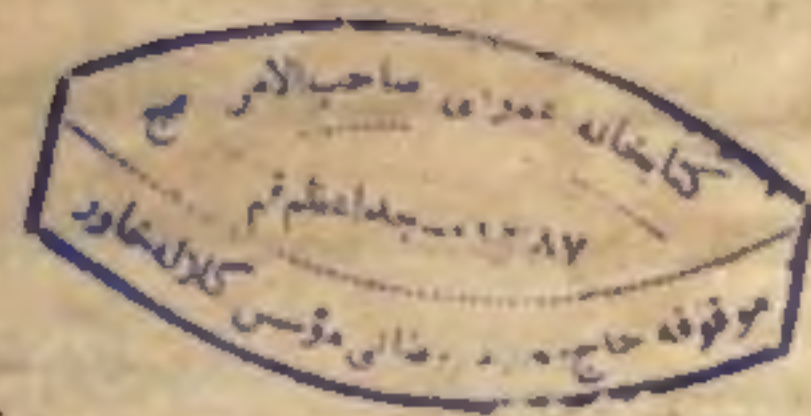 كتابخانه عمومی صاحب الامر عج
۱۳۸۷ مسجد اعظم قم
موقوفه حاج محمد رمضانی مؤسس کلاله خاور